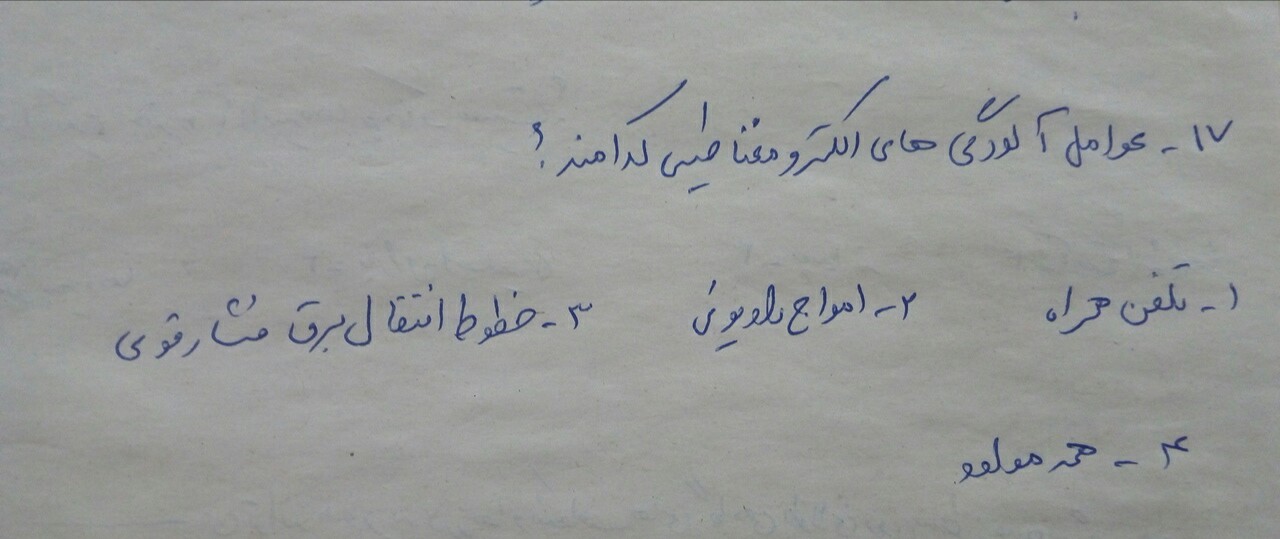 ۱۷- عوامل آلودگی های الکترو مغناطیسی کدامند؟
۱- تلفن همراه ۲- امواج رادیویی ۳- خطوط انتقال برق فشار قوی
۴- همه موارد